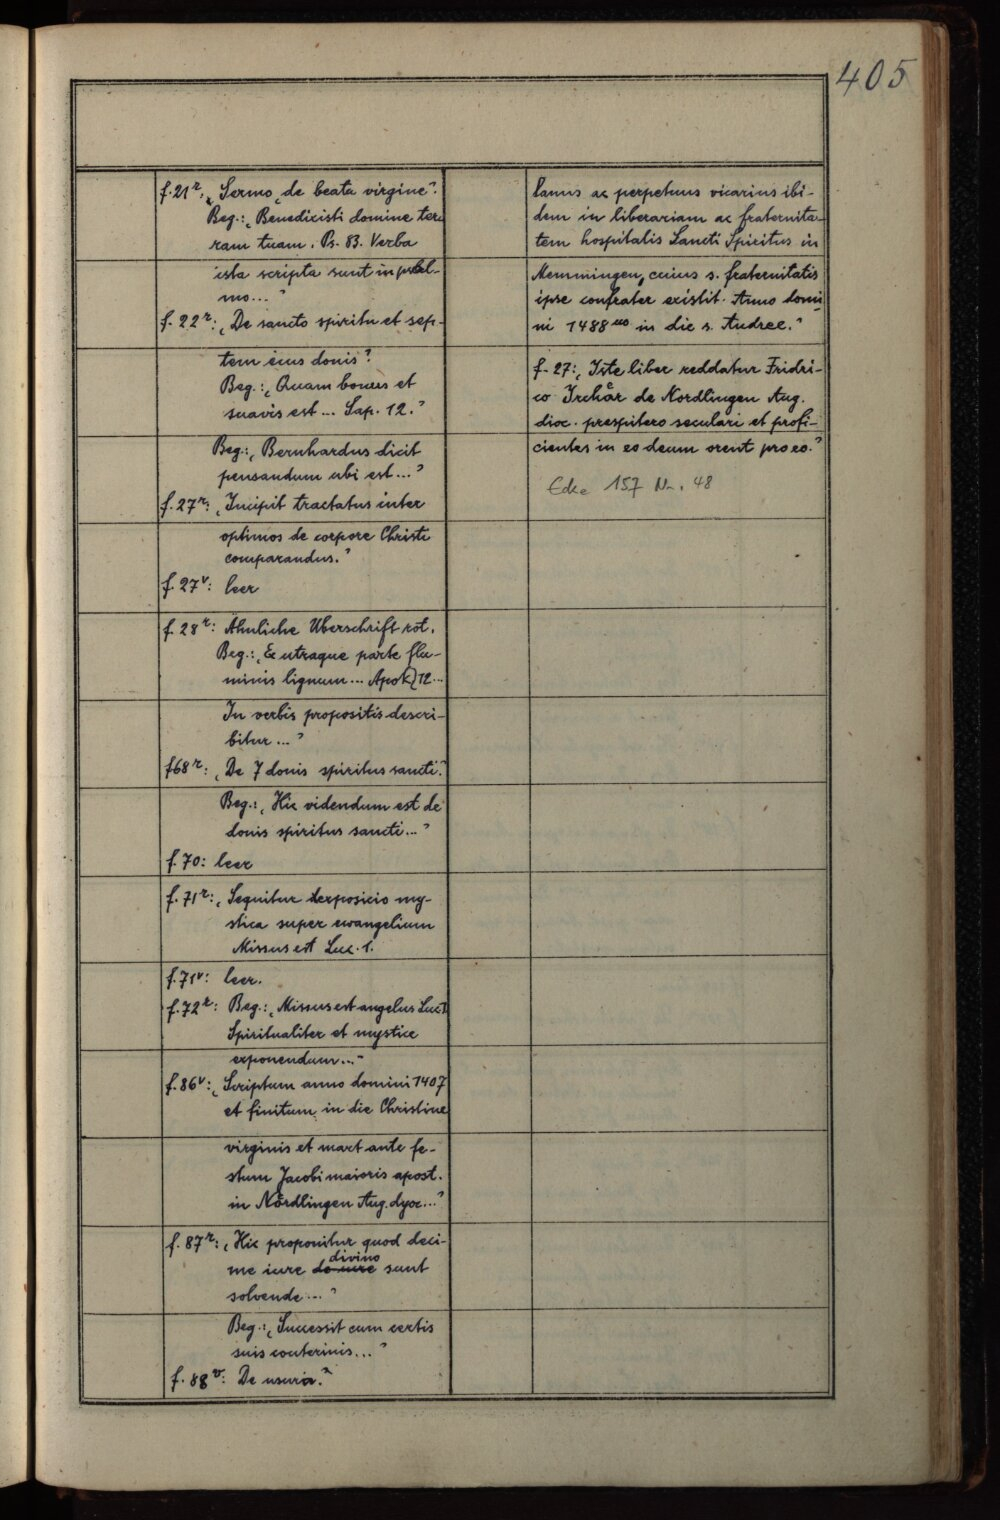 405
f. 21r: „Sermo de beata virgine“.
Beg.: „Benedixisti domine ter-
ram tuam. Ps. 83. Verba
ista scripta sunt in psal-
mo...“
f. 22r: „De sancto spiritu et sep-
tem eius donis“.
Beg.: „Quam bonus et
suavis est... Sap. 12.“
Beg.: „Bernhardus dicit
pensandum ubi est...“
f. 27r: „Incipit tractatus inter
optimos de corpore Christi
comparandus.“
f. 27v: leer
f. 28r: Ähnliche Überschrift rot.
Beg.: „Ex utraque parte flu-
minis lignum... Apok 12...
In verbis propositis descri-
bitur...“
f 68r: „De 7 donis spiritus sancti“.
Beg.: „Hic videndum est de
donis spiritus sancti...“
f. 70: leer
f. 71r: „Sequitur exposicio my-
stica super ewangelium
Missus est Luc. 1.
f. 71v: leer.
f. 72r: Beg.: „Missus est angelus Luc. 1
Spiritualiter et mystice
exponendum...“
f. 86v: „Scriptum anno domini 1407
et finitum in die Christine
virginis et mart ante fe-
stum Jacobi maioris apost.
in Nördlingen Aug. dyoc...“
f. 87r: „Hic proponitur quod deci-
me iure divino sunt
solvende...“
Beg.: „Successit cum certis
suis conterinis...“
f. 88v: De usuria.“
lanus ac perpetuus vicarius ibi-
dem in liberariam ac fraternita-
tem hospitalis Sancti Spiritus in
Memmingen, cuius s. fraternitatis
ipse confrater existit. Anno domi-
ni 1488uo in die s. Andree.“
f. 27: „Iste liber reddatur Fridri-
co Irchår de Nordlingen Aug.
dioc. prespitero seculari et profi-
cientes in eo deum orent pro eo.“
Ecke 157 Nr. 48